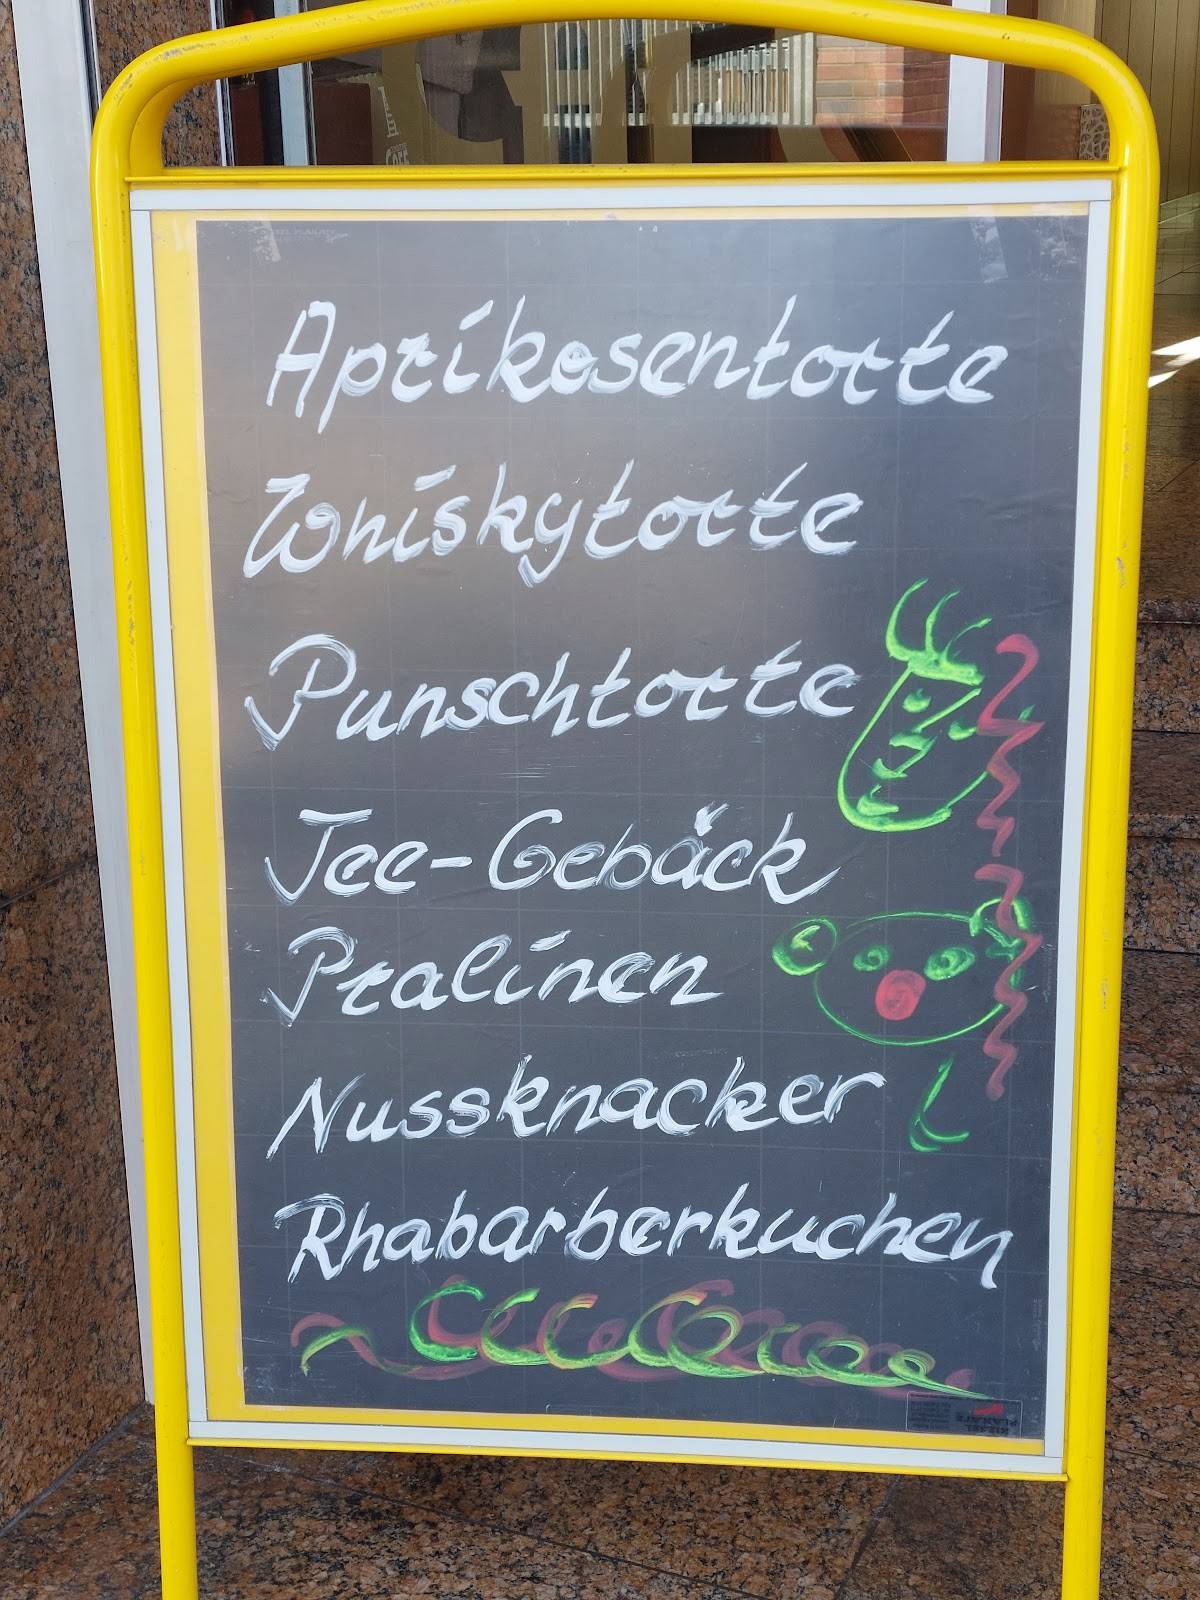 Aprikosentorte
Whiskytorte
Punschtorte
Tee-Gebäck
Pralinen
Nussknacker
Rhabarberkuchen